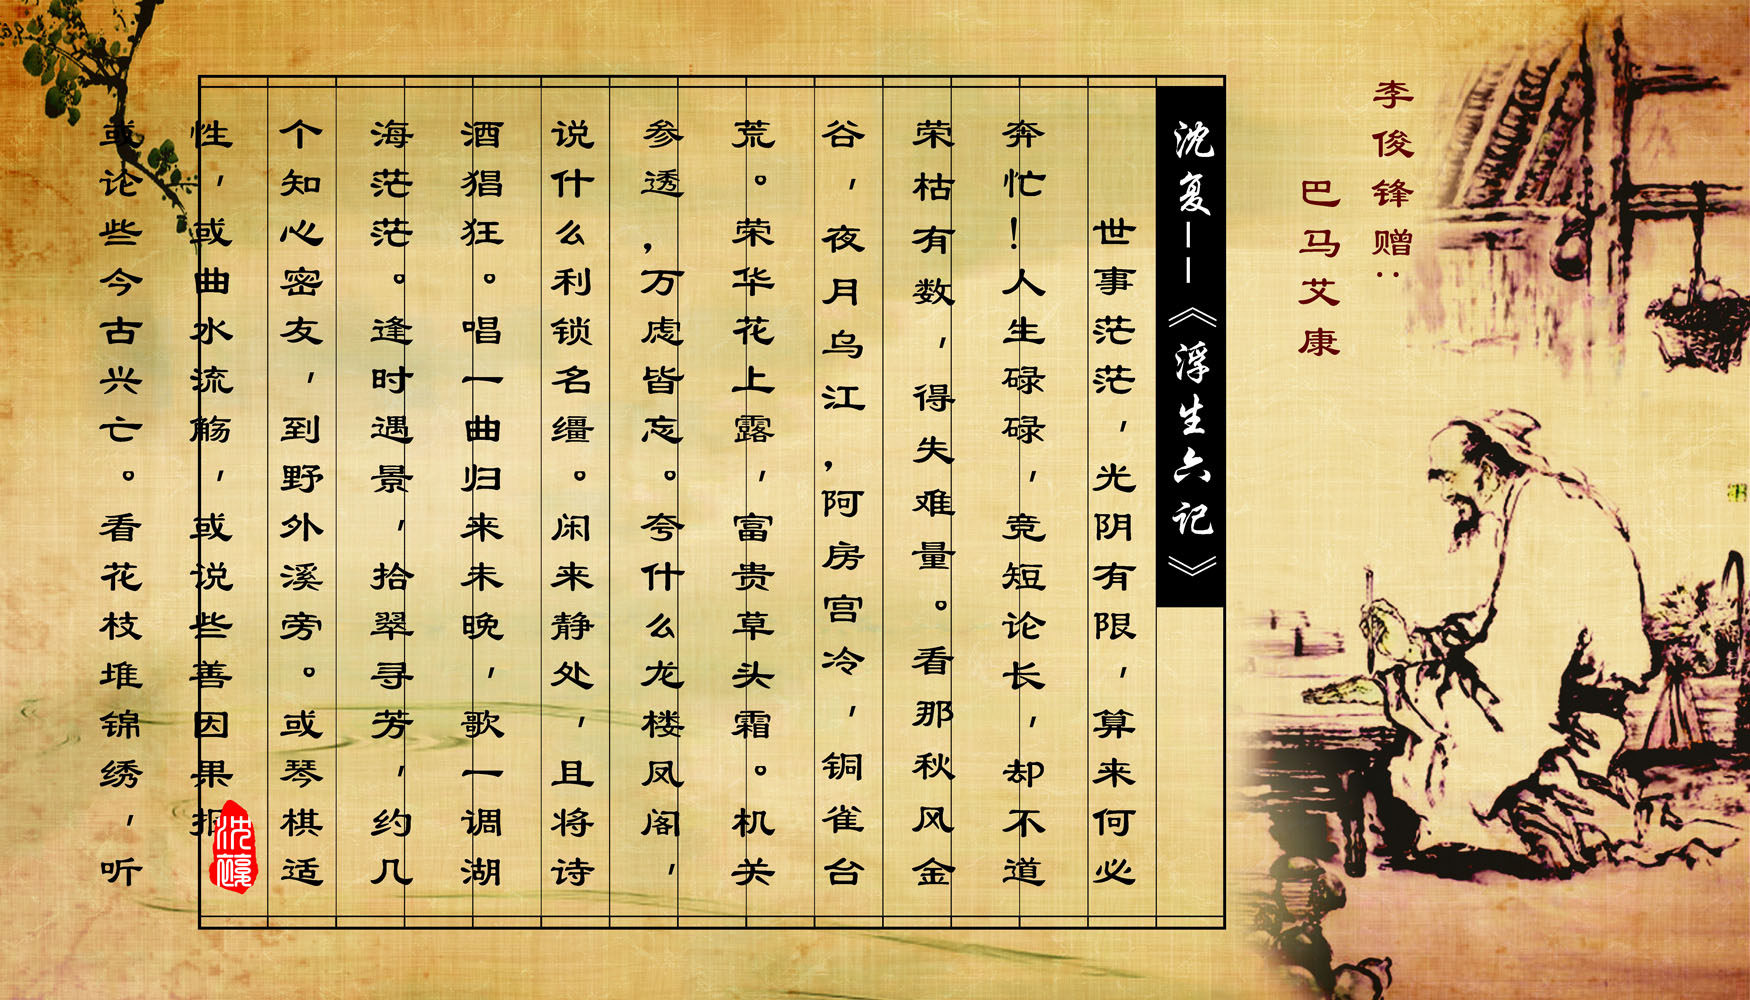 李俊锋赠:
巴马艾康
沈复——《浮生六记》
世事茫茫，光阴有限，算来何必
奔忙！人生碌碌，竞短论长，却不道
荣枯有数，得失难量。看那秋风金
谷，夜月乌江，阿房宫冷，铜雀台
荒。荣华花上露，富贵草头霜。机关
参透，万虑皆忘。夸什么龙楼凤阁，
说什么利锁名缰。闲来静处，且将诗
酒猖狂。唱一曲归来未晚，歌一调湖
海茫茫。逢时遇景，拾翠寻芳，约几
个知心密友，到野外溪旁。或琴棋适
性，或曲水流觞，或说些善因果报
或论些今古兴亡。看花枝堆锦绣，听
沈复